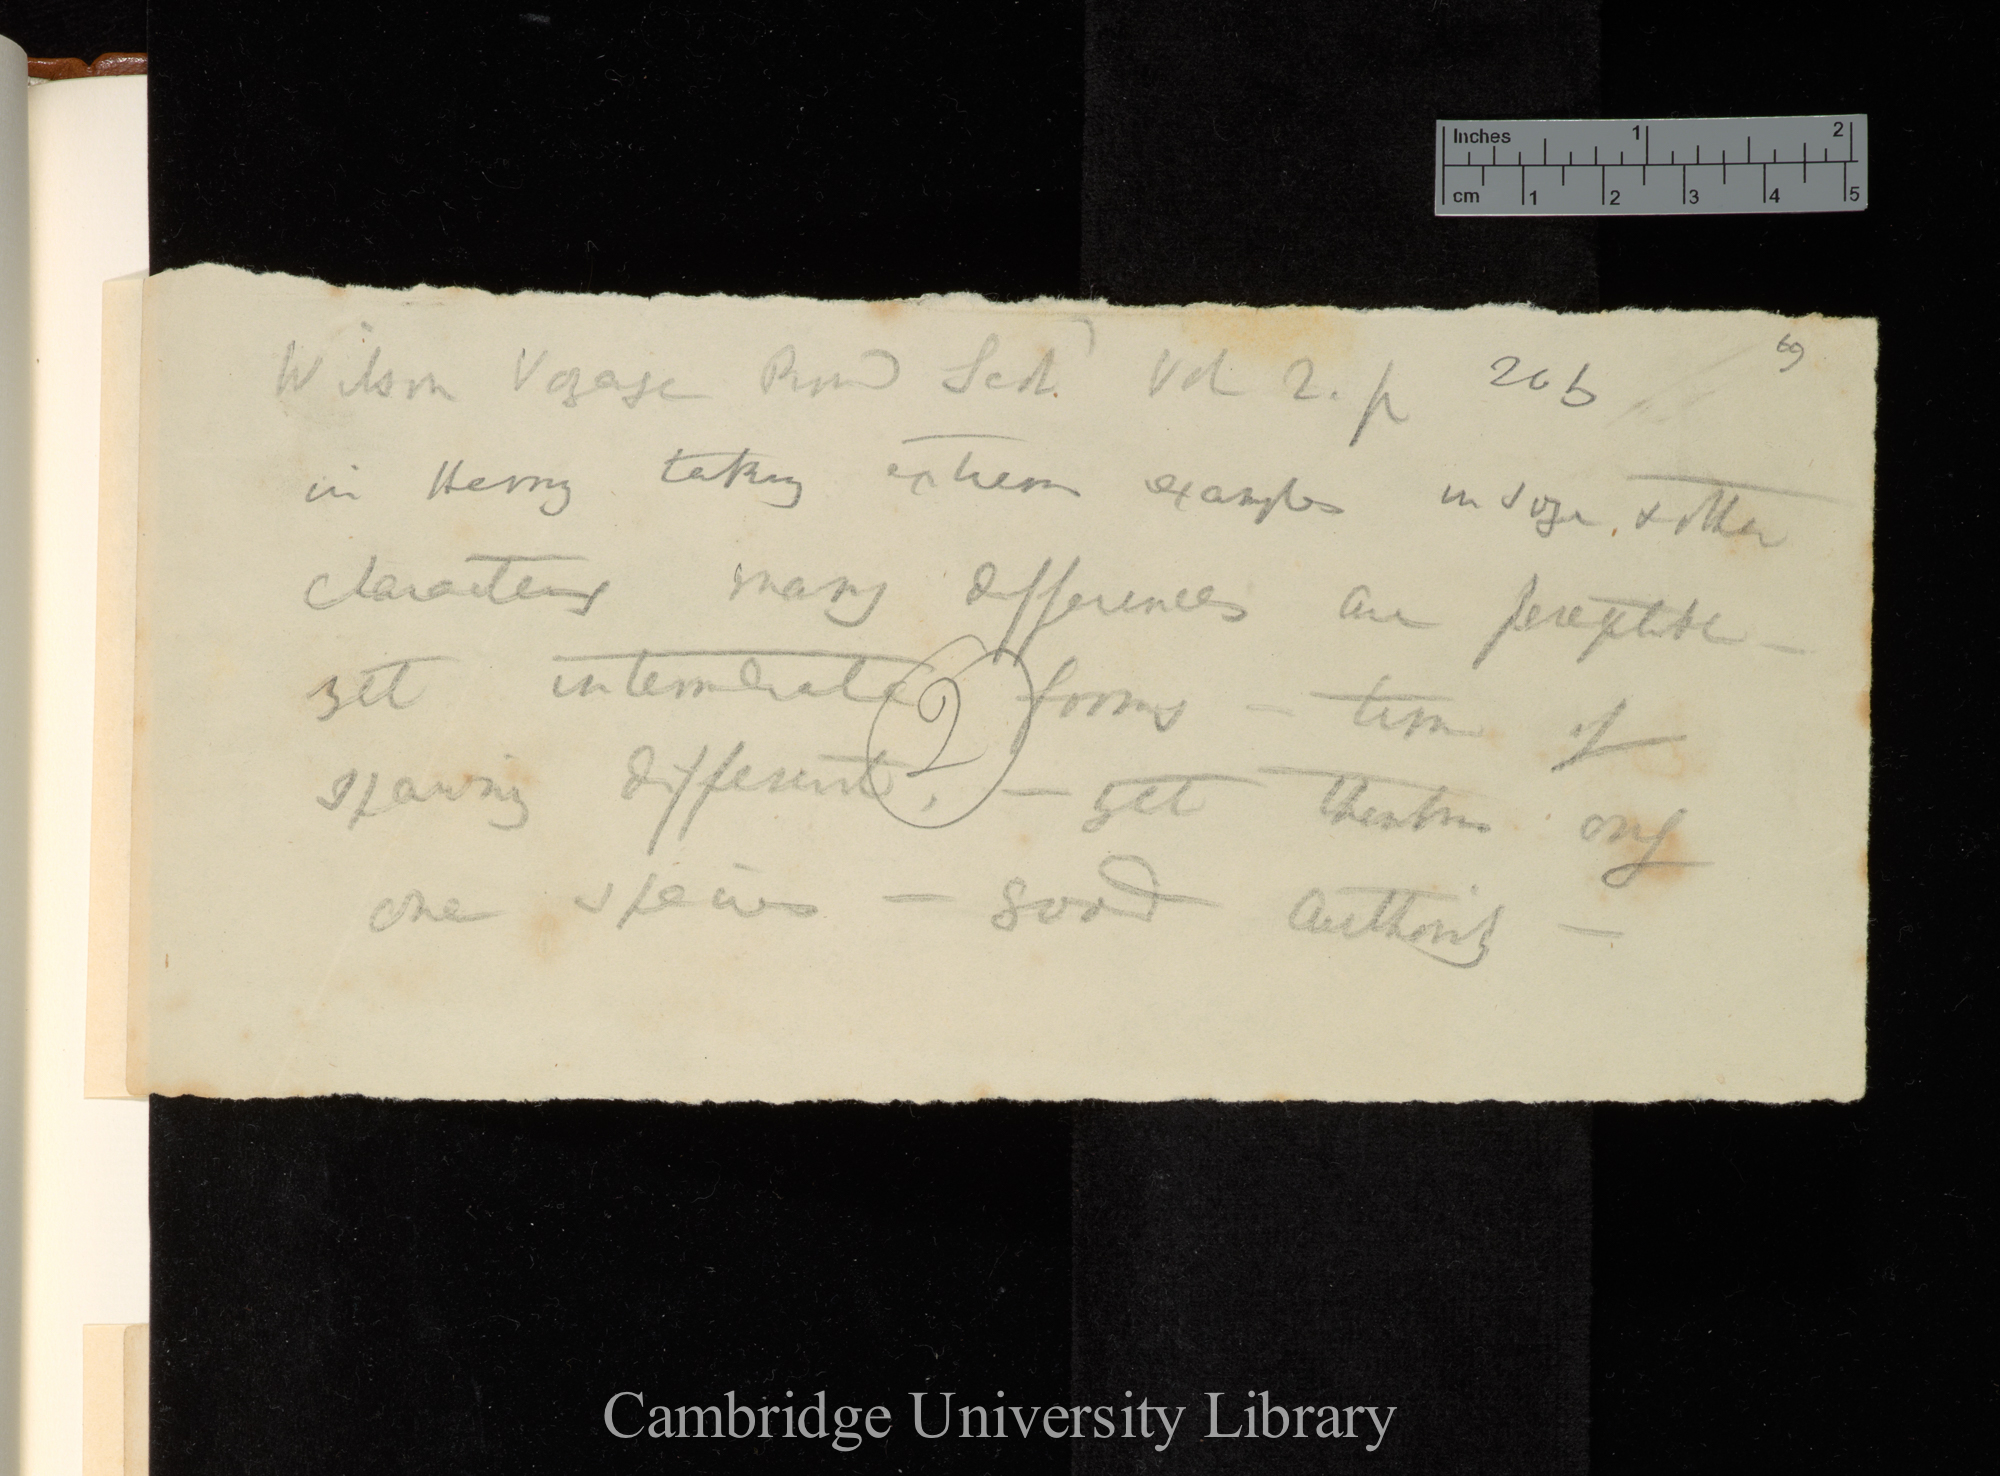 Inches 1 2
cm 1 2 3 4 5
69
Wilson Voyage Round Scot. Vol 2. p 206
in Herring taking extreme examples in size & other
characters many differences are perceptible —
yet intermediate forms — time of
2
spawning different, — yet thinks only
one species — good authority —
Cambridge University Library